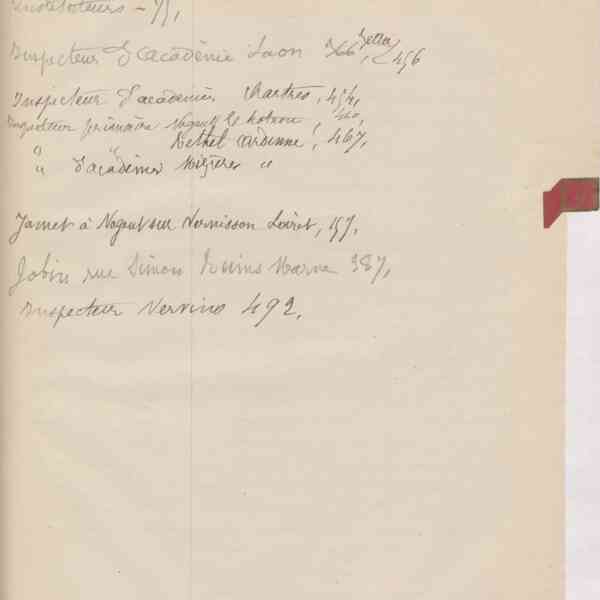 Instituteurs - 77,
Inspecteur d'académie Laon 366, 456
Inspecteur d'académie Chartres, 454,
Inspecteur primaire Nogent le Rotrou, 460,
" " Rethel Ardenne, 467,
" d'académie Mézières "
Jamet à Nogent sur Vernisson Loiret, 157,
Jobin rue Simon Reims Marne 387,
Inspecteur Vervins 492,